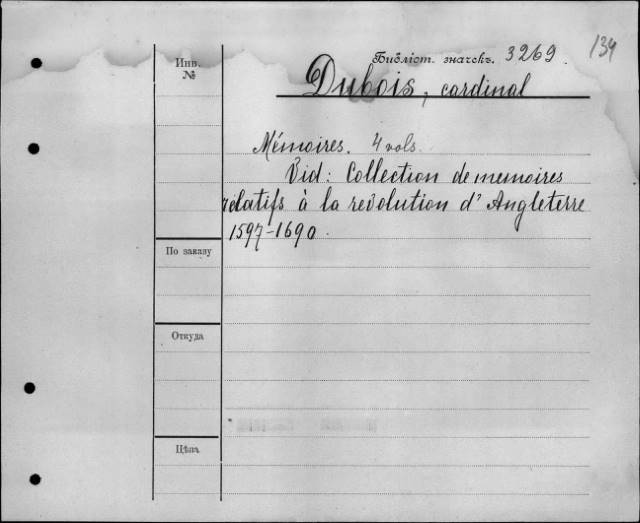 134
Библіот. значекъ. 3269.
Инв.
№
Dubois, cardinal
Mémoires. 4 vols.
Vid: Collection de memoires
relatifs à la revolution d'Angleterre
1597-1690.
По заказу
Откуда
Цѣна